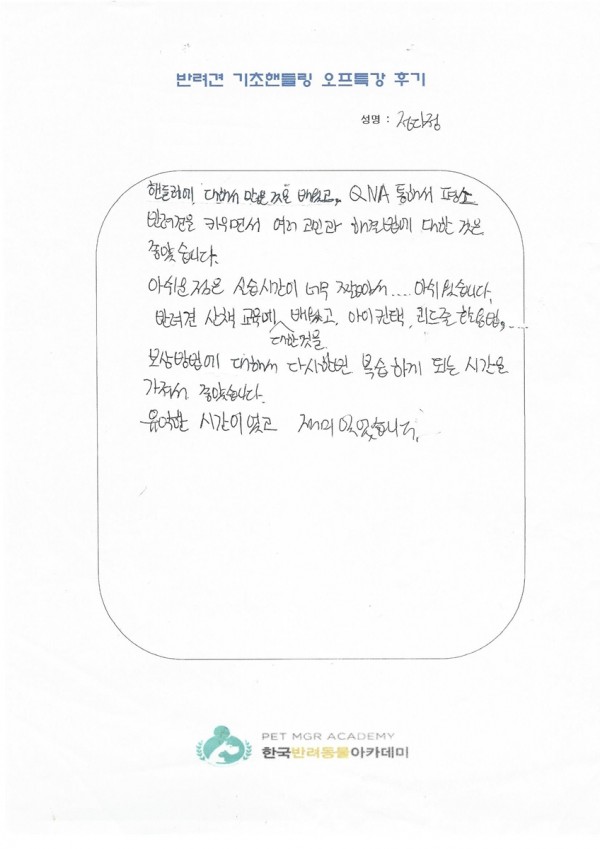 반려견 기초핸들링 오프특강 후기
성명 : 정다정
핸들러에 대해서 많은 것을 배웠고, QNA 통해서 평소
반려견을 키우면서 여러 고민과 해결방법에 대한 것은
좋았습니다.
아쉬운 점은 실습시간이 너무 짧아서.... 아쉬웠습니다.
반려견 산책 교육에 대한것을 배웠고, 아이컨택, 리드줄 활용법, ....
보상방법에 대해서 다시한번 복습하게 되는 시간을
가져서 좋았습니다.
유익한 시간이였고 재미있었습니다.
PET MGR ACADEMY
한국반려동물아카데미